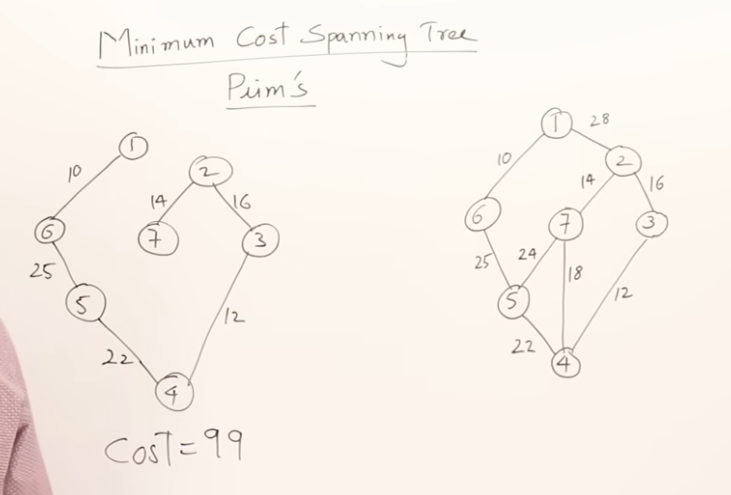 Minimum Cost Spanning Tree
Prim's
1
10
2
14
16
6
7
3
25
5
12
22
4
Cost=99
1
28
10
2
14
16
6
7
3
25
24
18
5
12
22
4